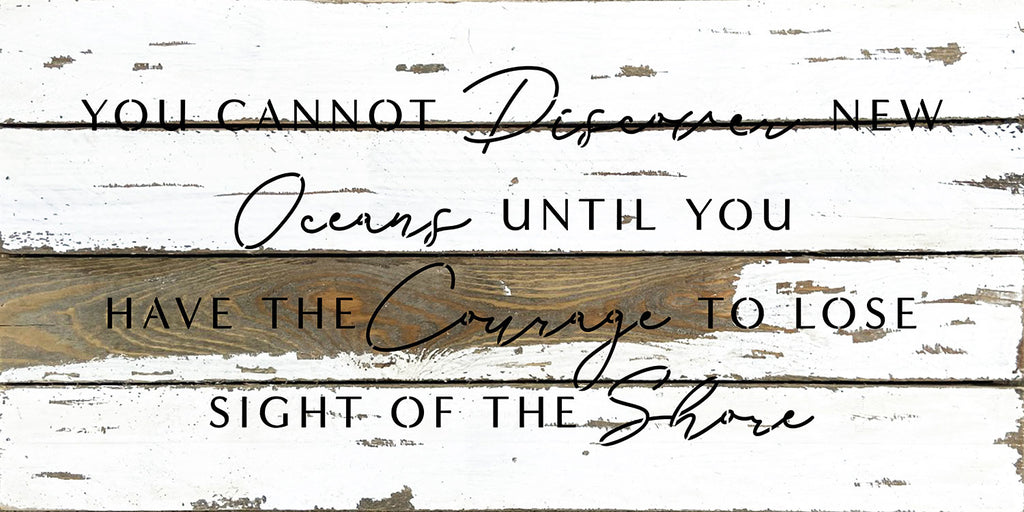 YOU CANNOT Discover NEW
Oceans UNTIL YOU
HAVE THE Courage TO LOSE
SIGHT OF THE Shore